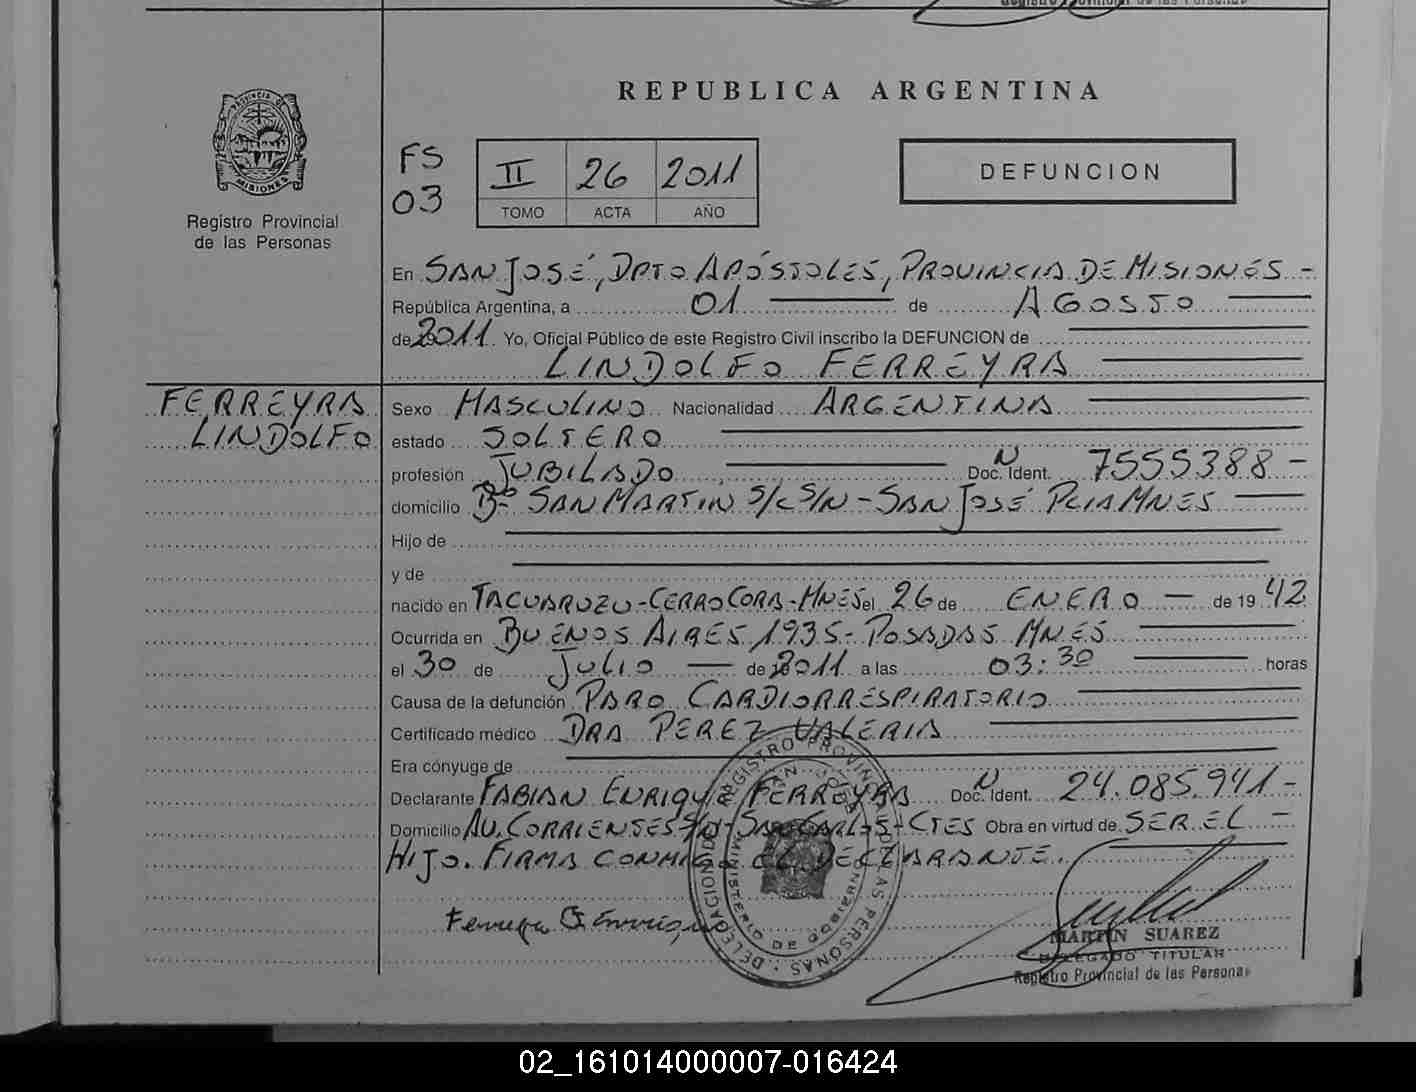 REPUBLICA ARGENTINA
PROVINCIA DE
MISIONES
Registro Provincial
de las Personas
FS
03
II 26 2011
TOMO ACTA AÑO
DEFUNCION
En SAN JOSÉ, DPTO APÓSTOLES, PROVINCIA DE MISIONES -
República Argentina, a 01 de AGOSTO
de 2011. Yo, Oficial Público de este Registro Civil inscribo la DEFUNCION de
LINDOLFO FERREYRA
FERREYRA
LINDOLFO
Sexo MASCULINO Nacionalidad ARGENTINA
estado SOLTERO
profesión JUBILADO Doc. Ident. N 7555388 -
domicilio Bº SAN MARTIN S/C S/N - SAN JOSÉ PCIA MNES
Hijo de
y de
nacido en TACUARUZU - CERRO CORA - MNES el 26 de ENERO - de 19 42
Ocurrida en BUENOS AIRES 1935 - POSADAS MNES
el 30 de JULIO de 2011 a las 03:30 horas
Causa de la defunción PARO CARDIORRESPIRATORIO
Certificado médico DRA PEREZ VALERIA
Era cónyuge de
Declarante FABIAN ENRIQUE FERREYRA Doc. Ident. N 24.085.941 -
Domicilio AV. CORRIENTES S/N - SAN CARLOS - CTES Obra en virtud de SER EL -
HIJO. FIRMA CONMIGO EL DECLARANTE.
DELEGACION DEL REGISTRO PROVINCIAL DE LAS PERSONAS
SAN JOSE
MINISTERIO DE GOBIERNO
MARTIN SUAREZ
DELEGADO TITULAR
Registro Provincial de las Personas
02_161014000007-016424